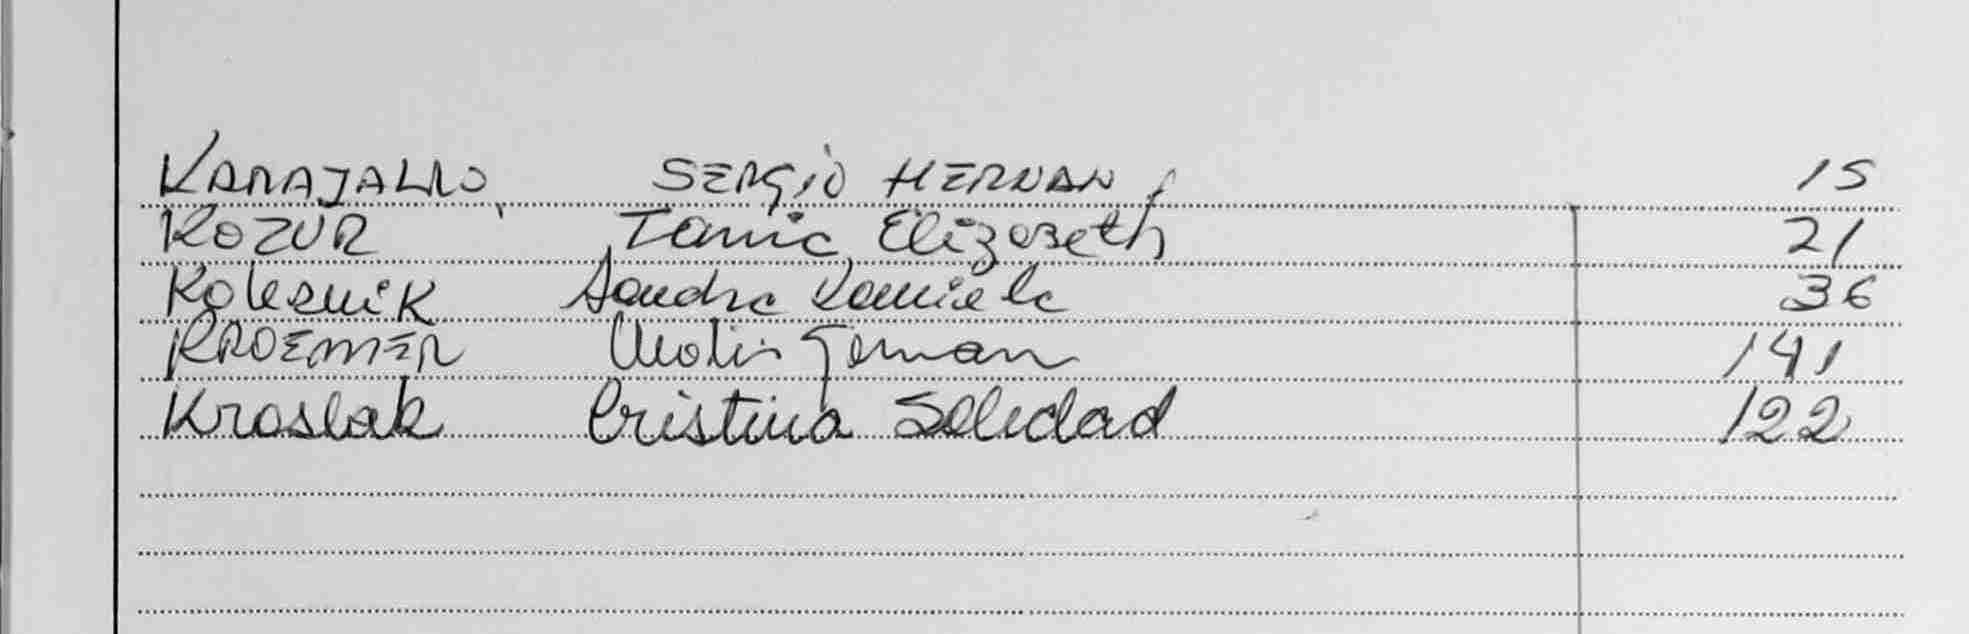 KARAJALLO, SERGIO HERNAN 15
KOZUR Tania Elizabeth 21
Kolesnik Sandra Daniela 36
KROEMER Matias German 141
Kroslak Cristina Soledad 122